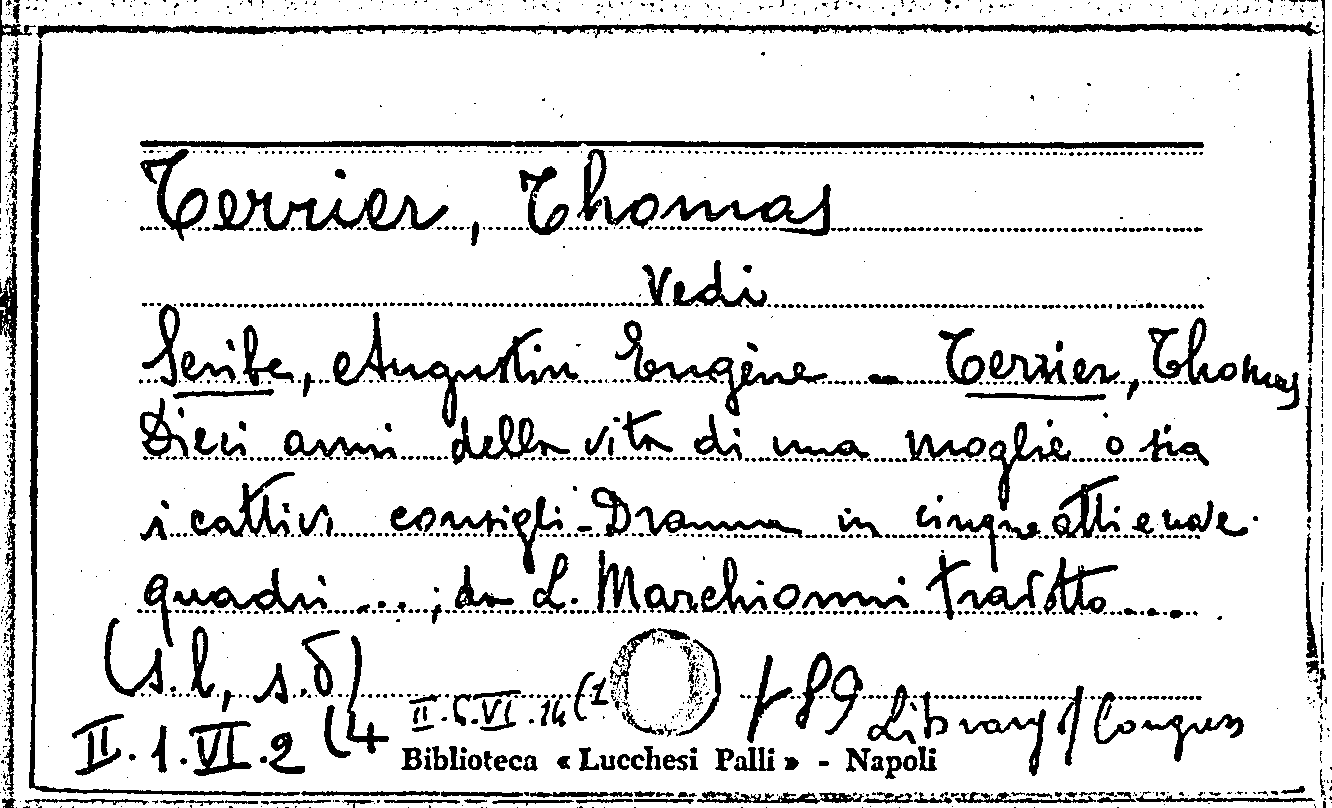 Terrier, Thomas
Vedi
Scribe, Augustin Eugène - Terrier, Thomas
Dieci anni della vita di una moglie o sia
i cattivi consigli - Dramma in cinque atti e nove
quadri ... ; da L. Marchionni tradotto ...
(s.l, s.d)
II.6.VI.14(1 f 89 Library of Congress
II.1.VI.2(4
Biblioteca « Lucchesi Palli » - Napoli